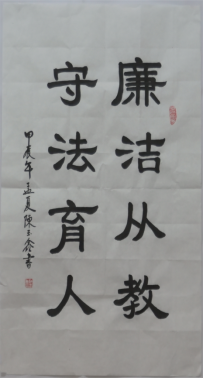 廉洁从教
守法育人
甲辰年孟夏陈玉鑫书